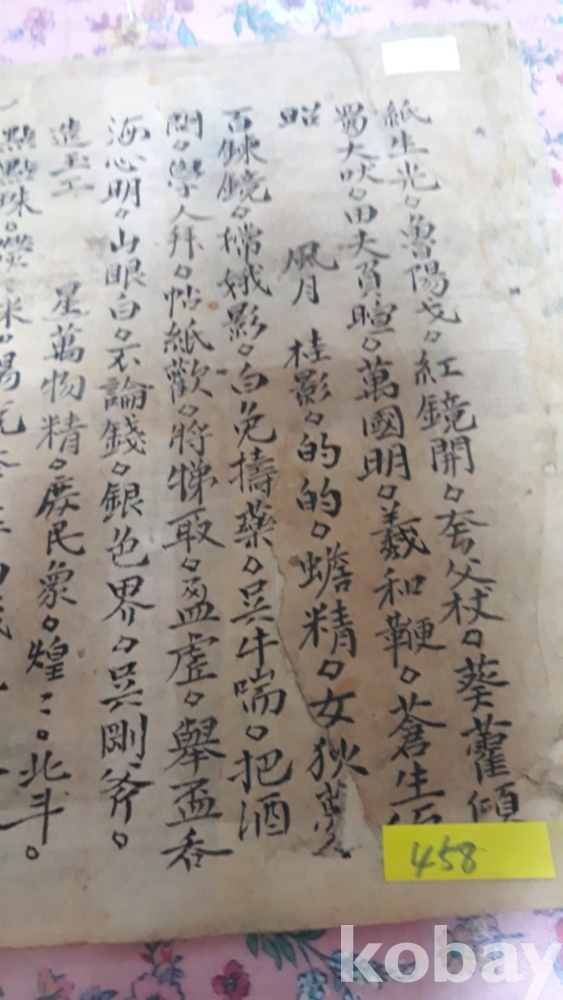 紙生光。魯陽戈。紅鏡開。夸父杖。葵藿傾
蜀犬吠。田夫負暄。萬國明。羲和鞭。蒼生仰
照 風月 桂影。的的。蟾精。女狄
百鍊鏡。嫦娥影。白兔擣藥。吳牛喘。把酒
問。學人拜。帖紙歡。將梯取。盈虛。舉盃吞
海心明。山眼白。不論錢。銀色界。吳剛斧。
造玉工 星萬物精。庶民象。煌〻。北斗。
點點珠。
458
kobay